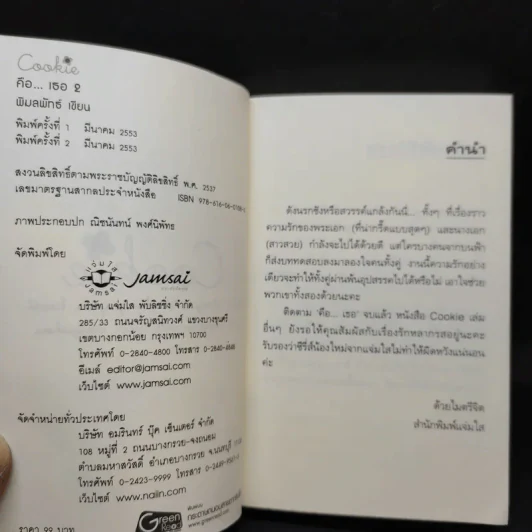 Cookie
คือ... เธอ 2
พิมลพัทธ์ เขียน
พิมพ์ครั้งที่ 1 มีนาคม 2553
พิมพ์ครั้งที่ 2 มีนาคม 2553
สงวนลิขสิทธิ์ตามพระราชบัญญัติลิขสิทธิ์ พ.ศ. 2537
เลขมาตรฐานสากลประจำหนังสือ ISBN 978-616-06-
ภาพประกอบปก ณิชนันทน์ พงศ์นิพัทธ
จัดพิมพ์โดย
แจ่มใส
JAMSAI
Jamsai
บริษัท แจ่มใส พับลิชชิ่ง จำกัด
285/33 ถนนจรัญสนิทวงศ์ แขวงบางขุนศรี
เขตบางกอกน้อย กรุงเทพฯ 10700
โทรศัพท์ 0-2840-4800 โทรสาร 0-2840-
อีเมล์ editor@jamsai.com
เว็บไซต์ www.jamsai.com
จัดจำหน่ายทั่วประเทศโดย
บริษัท อมรินทร์ บุ๊ค เซ็นเตอร์ จำกัด
108 หมู่ที่ 2 ถนนบางกรวย-จงถนอม
ตำบลมหาสวัสดิ์ อำเภอบางกรวย จ.นนทบุรี
โทรศัพท์ 0-2423-9999 โทรสาร
เว็บไซต์ www.naiin.com
ราคา 99 บาท
Green
Read
คำนำ
ดังนรกชังหรือสวรรค์แกล้งกันนี่... ทั้งๆ ที่เรื่องราว
ความรักของพระเอก (ที่น่ากรี๊ดแบบสุดๆ) และนางเอก
(สาวสวย) กำลังจะไปได้ด้วยดี แต่ใครบางคนจากบนฟ้า
ก็ส่งบททดสอบลงมาลองใจคนทั้งคู่ งานนี้ความรักอย่าง
เดียวจะทำให้ทั้งคู่ผ่านพ้นอุปสรรคไปได้หรือไม่ เอาใจช่วย
พวกเขาทั้งสองด้วยนะคะ
ติดตาม 'คือ... เธอ' จบแล้ว หนังสือ Cookie เล่ม
อื่นๆ ยังรอให้คุณสัมผัสกับเรื่องรักหลากรสอยู่นะคะ
รับรองว่าซีรี่ส์น้องใหม่จากแจ่มใสไม่ทำให้ผิดหวังแน่นอน
ค่ะ
ด้วยไมตรีจิต
สำนักพิมพ์แจ่มใส